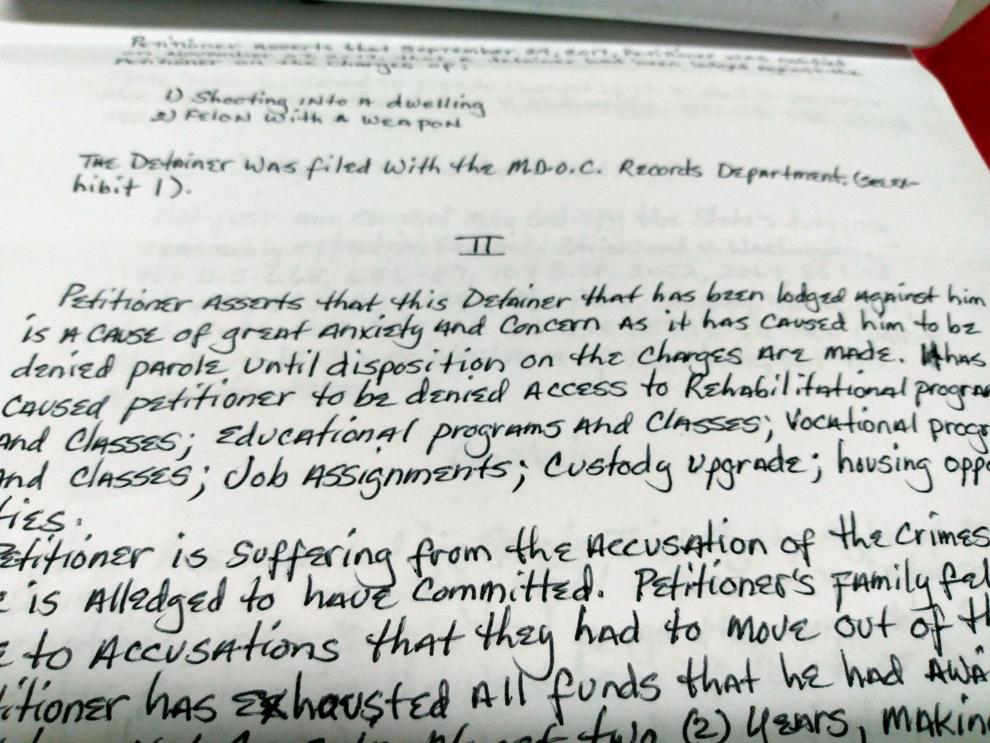 Petitioner asserts that September 29, 2017, Petitioner was notified
Petitioner on the charges of:
1) Shooting into a dwelling
2) Felon with a weapon
The Detainer was filed with the M.D.O.C. Records Department. (see Ex-
hibit 1).
II
Petitioner asserts that this Detainer that has been lodged against him
is a cause of great anxiety and concern as it has caused him to be
denied parole until disposition on the charges are made. It has
caused petitioner to be denied access to Rehabilitational progra
and classes; Educational programs and classes; Vocational progr
and classes; Job Assignments; Custody upgrade; housing oppo
ties.
etitioner is suffering from the accusation of the crimes
e is alledged to have committed. Petitioner's family fel
e to accusations that they had to move out of th
titioner has exhausted all funds that he had awa
two (2) years, making